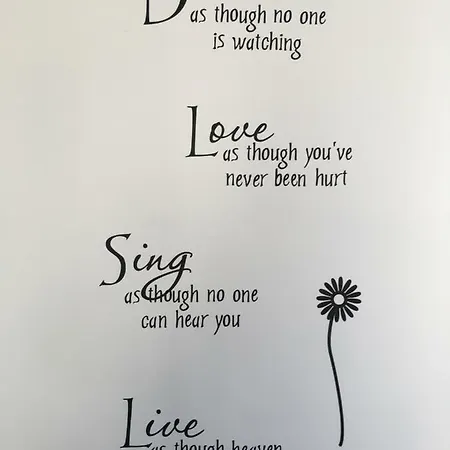 as though no one
is watching
Love
as though you've
never been hurt
Sing
as though no one
can hear you
Live
as though heaven